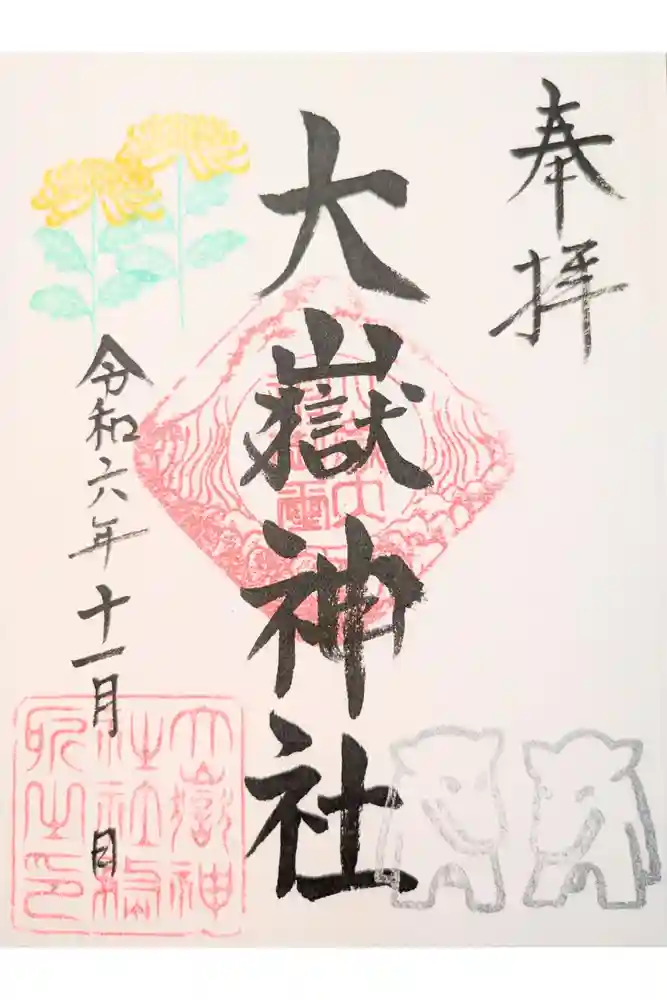 奉拝
大嶽神社
令和六年十一月 日
大嶽神
社社務
所之印